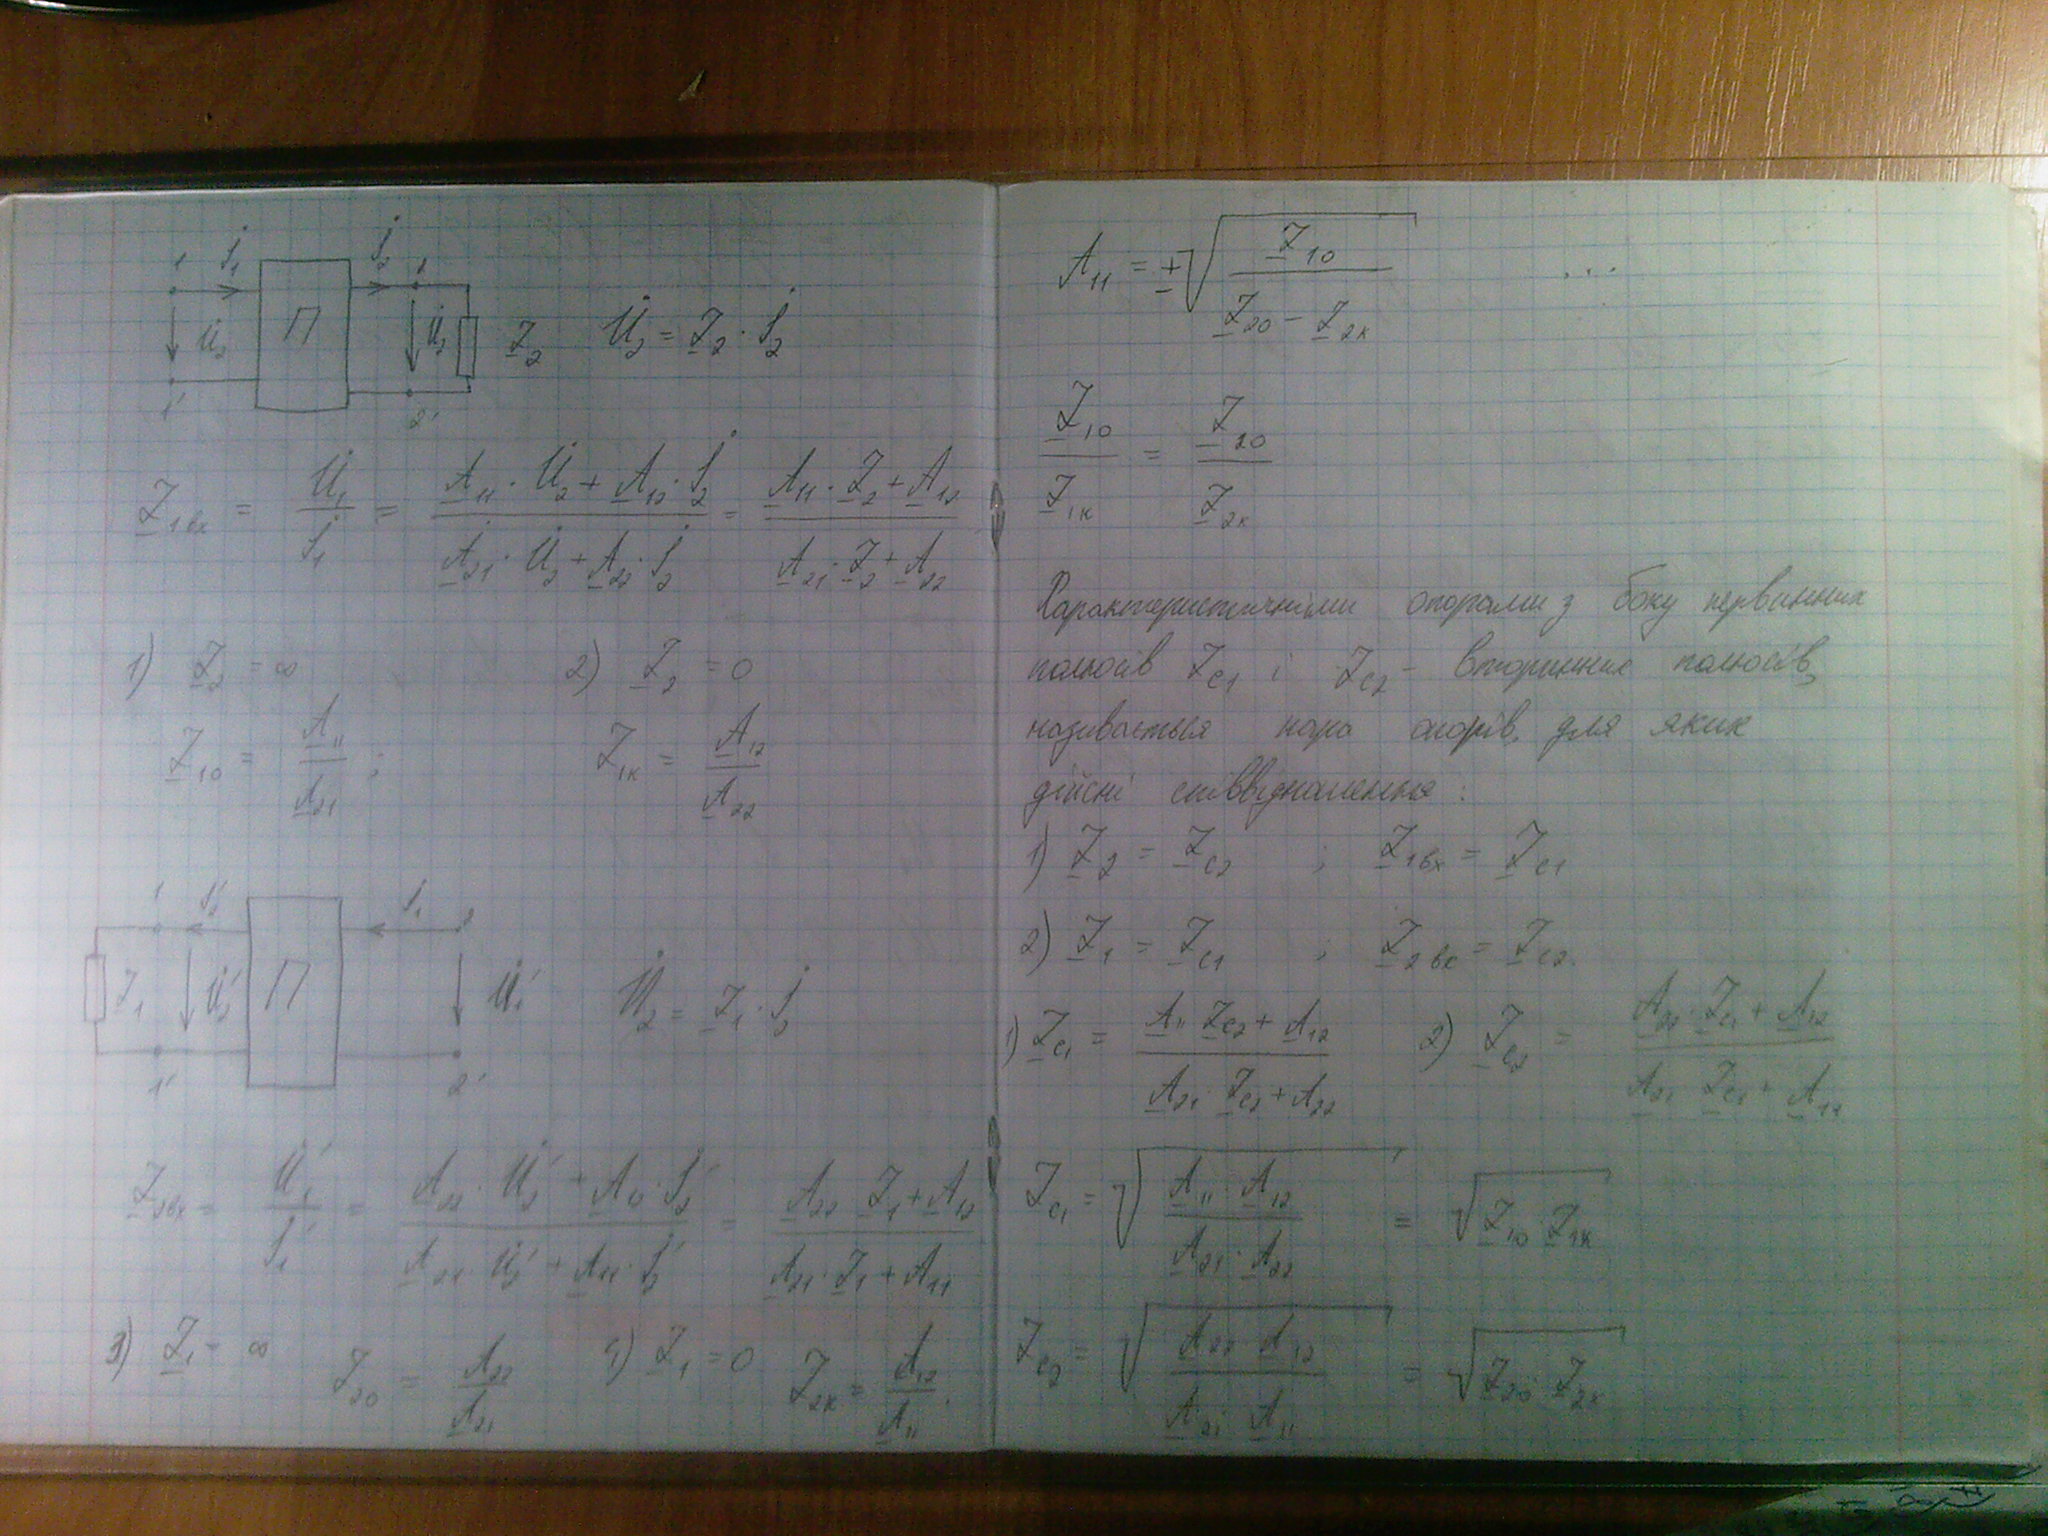 1 İ₁ İ₂ 2
U̇₂ П U̇₂ Z₂ U̇₂ = Z₂ · İ₂
1' 2'
Z₁вх = U̇₁ / İ₁ = (A₁₁ · U̇₂ + A₁₂ · İ₂) / (A₂₁ · U̇₂ + A₂₂ · İ₂) = (A₁₁ · Z₂ + A₁₂) / (A₂₁ · Z₂ + A₂₂)
1) Z₂ = ∞ 2) Z₂ = 0
Z₁₀ = A₁₁ / A₂₁ ; Z₁к = A₁₂ / A₂₂
1 İ₂' İ₁ 2
Z₁ U̇₂' П U̇₁' U̇₂ = Z₁ · İ₂
1' 2'
Z₂вх = U̇₁' / İ₁' = (A₂₂ · U̇₂' + A₁₂ · İ₂') / (A₂₁ · U̇₂' + A₁₁ · İ₂') = (A₂₂ Z₁ + A₁₂) / (A₂₁ · Z₁ + A₁₁)
3) Z₁ = ∞ Z₂₀ = A₂₂ / A₂₁ 4) Z₁ = 0 Z₂к = A₁₂ / A₁₁.
A₁₁ = ±√(Z₁₀ / (Z₂₀ − Z₂к)) ...
Z₁₀ / Z₁к = Z₂₀ / Z₂к
Характеристичними опорами з боку первинних
полюсів Zc₁ і Zc₂ - вторинних полюсів,
називається пара опорів, для яких
дійсні співвідношення:
1) Z₂ = Zc₂ ; Z₁вх = Zc₁
2) Z₁ = Zc₁ ; Z₂вх = Zc₂.
1) Zc₁ = (A₁₁ Zc₂ + A₁₂) / (A₂₁ Zc₂ + A₂₂) 2) Zc₂ = (A₂₂ · Zc₁ + A₁₂) / (A₂₁ Zc₁ + A₁₁)
Zc₁ = √((A₁₁ · A₁₂) / (A₂₁ · A₂₂)) = √(Z₁₀ · Z₁к)
Zc₂ = √((A₂₂ · A₁₂) / (A₂₁ · A₁₁)) = √(Z₂₀ · Z₂к)